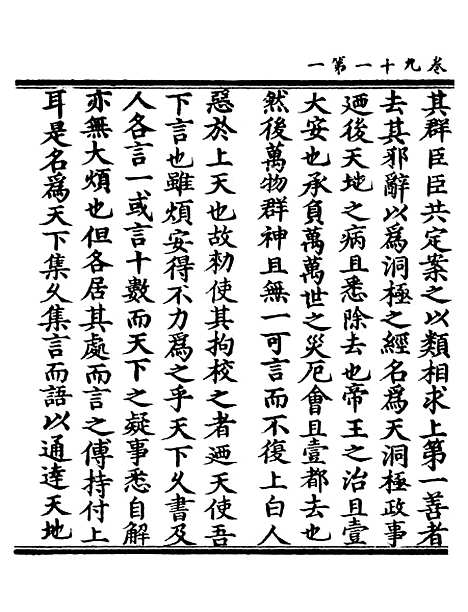 卷九十一第一
其群臣臣共定案之以類相求上第一善者
去其邪辭以爲洞極之經名爲天洞極政事
迺後天地之病且悉除去也帝王之治且壹
大安也承負萬萬世之災厄會且壹都去也
然後萬物群神且無一可言而不復上白人
惡於上天也故勑使其拘校之者迺天使吾
下言也雖煩安得不力爲之乎天下久書及
人各言一或言十數而天下之疑事悉自解
亦無大煩也但各居其處而言之傅持付上
耳是名爲天下集久集言而語以通達天地